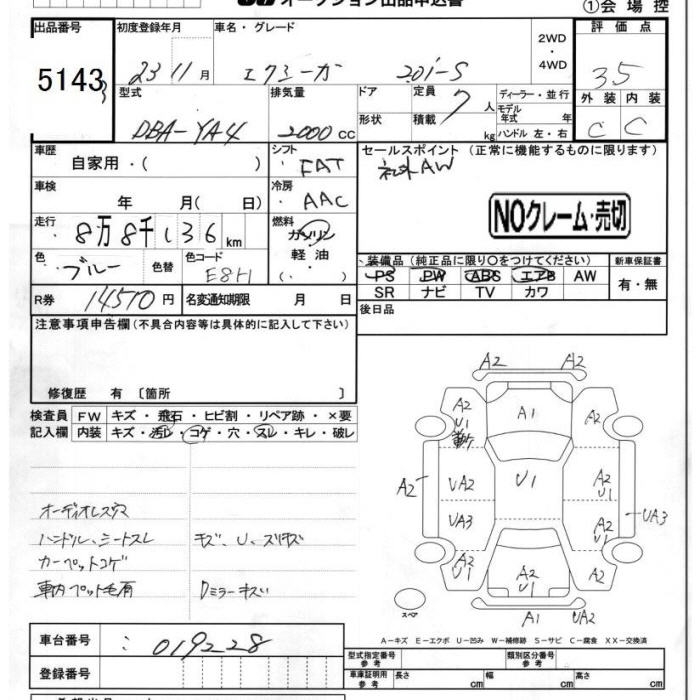 オークション出品申込書
①会場控
出品番号 初度登録年月 車名・グレード 2WD・4WD 評価点
5143 23 11月 エクシーガ 2.0i-S 3.5
型式 排気量 ドア 定員 7人 ディーラー・並行 外装 内装
DBA-YA4 2000cc 形状 積載 kg モデル年式 年 ハンドル 左・右 C C
車歴 シフト セールスポイント (正常に機能するものに限ります)
自家用・( ) FAT 社外AW
車検 冷房
年 月( 日) AAC NOクレーム・売切
走行 燃料
8万8千136km ガソリン・軽油 ( )
色 ブルー 色替 色コード E8H
装備品(純正品に限り○をつけてください) 新車保証書
PS PW ABS エアB AW 有・無
SR ナビ TV カワ
R券 14510円 名変通知期限 月 日
後日品
注意事項申告欄(不具合内容等は具体的に記入して下さい)
修復歴 有 〔箇所 〕
検査員記入欄 FW キズ・飛石・ヒビ割・リペア跡・×要
内装 キズ・汚レ・コゲ・穴・スレ・キレ・破レ
オーディオレス穴
ハンドル、シートスレ キズ、U、スリキズ
カーペットコゲ
車内ペット毛有 Rミラーキズ
A2 A2
A2 U1 A1 A2
A2 UA2 U1 A2 U1
UA3 A2 U1 UA3
A2 U1 A2 U1 A2
スペア A1 UA2
A-キズ E-エクボ U-凹み W-補修跡 S-サビ C-腐食 XX-交換済
車台番号 019228
型式指定番号 参考 類別区分番号 参考
登録番号 車庫証明用 参考 長さ cm 幅 cm 高さ cm